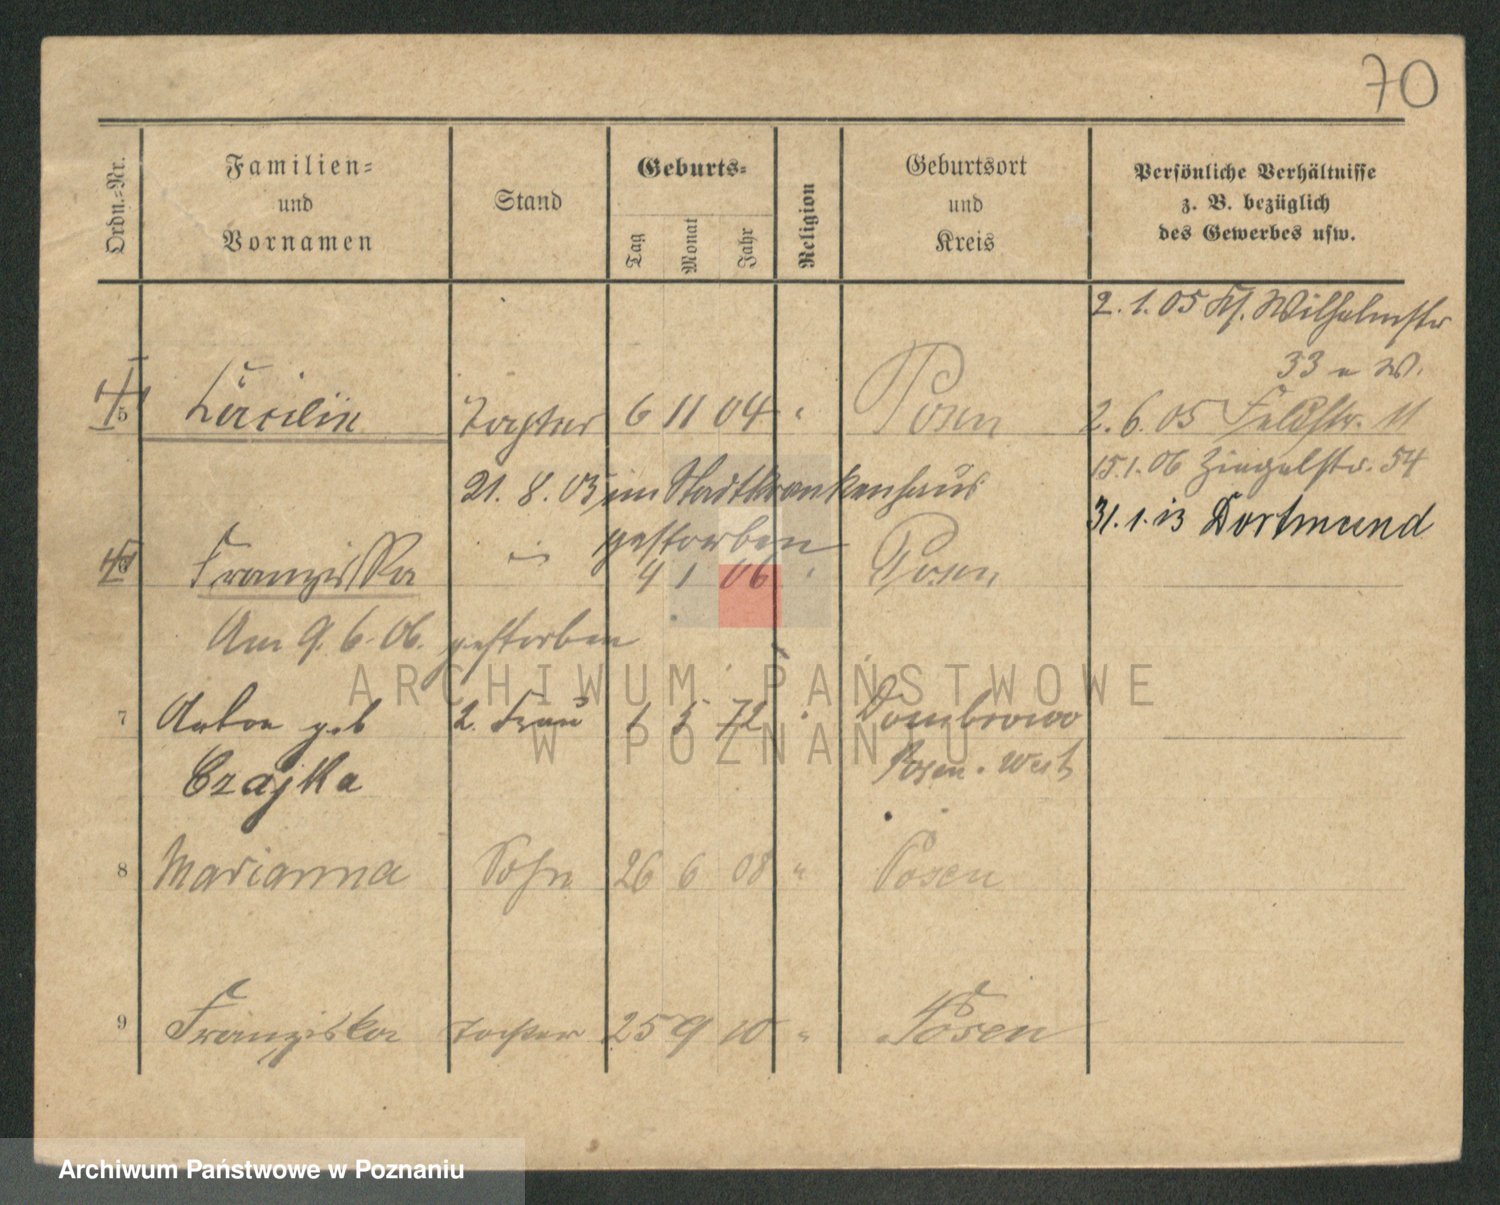 70
Ordn.-Nr.
Familien-
und
Vornamen
Stand
Geburts-
Tag
Monat
Jahr
Religion
Geburtsort
und
Kreis
Persönliche Verhältnisse
z. B. bezüglich
des Gewerbes usw.
2. 1. 05 Kl. Wilhelmstr
33 W.
5 Cäcilie Tochter 6 11 04 " Posen 2. 6. 05 Feldstr. 11
15.1.06 Ziegelstr. 54
21. 8. 05 im Stadtkrankenhaus
gestorben
31.1.13 Dortmund
6 Franziska " 4 1 06 " Posen
Am 9. 6. 06. gestorben
7 geb 2. Frau 1 5 72 " Dombrowo
Czajka Posen. West
8 Marianna Sohn 26 6 08 " Posen
9 Franziska Tochter 25 9 10 " Posen
ARCHIWUM PAŃSTWOWE
W POZNANIU
Archiwum Państwowe w Poznaniu